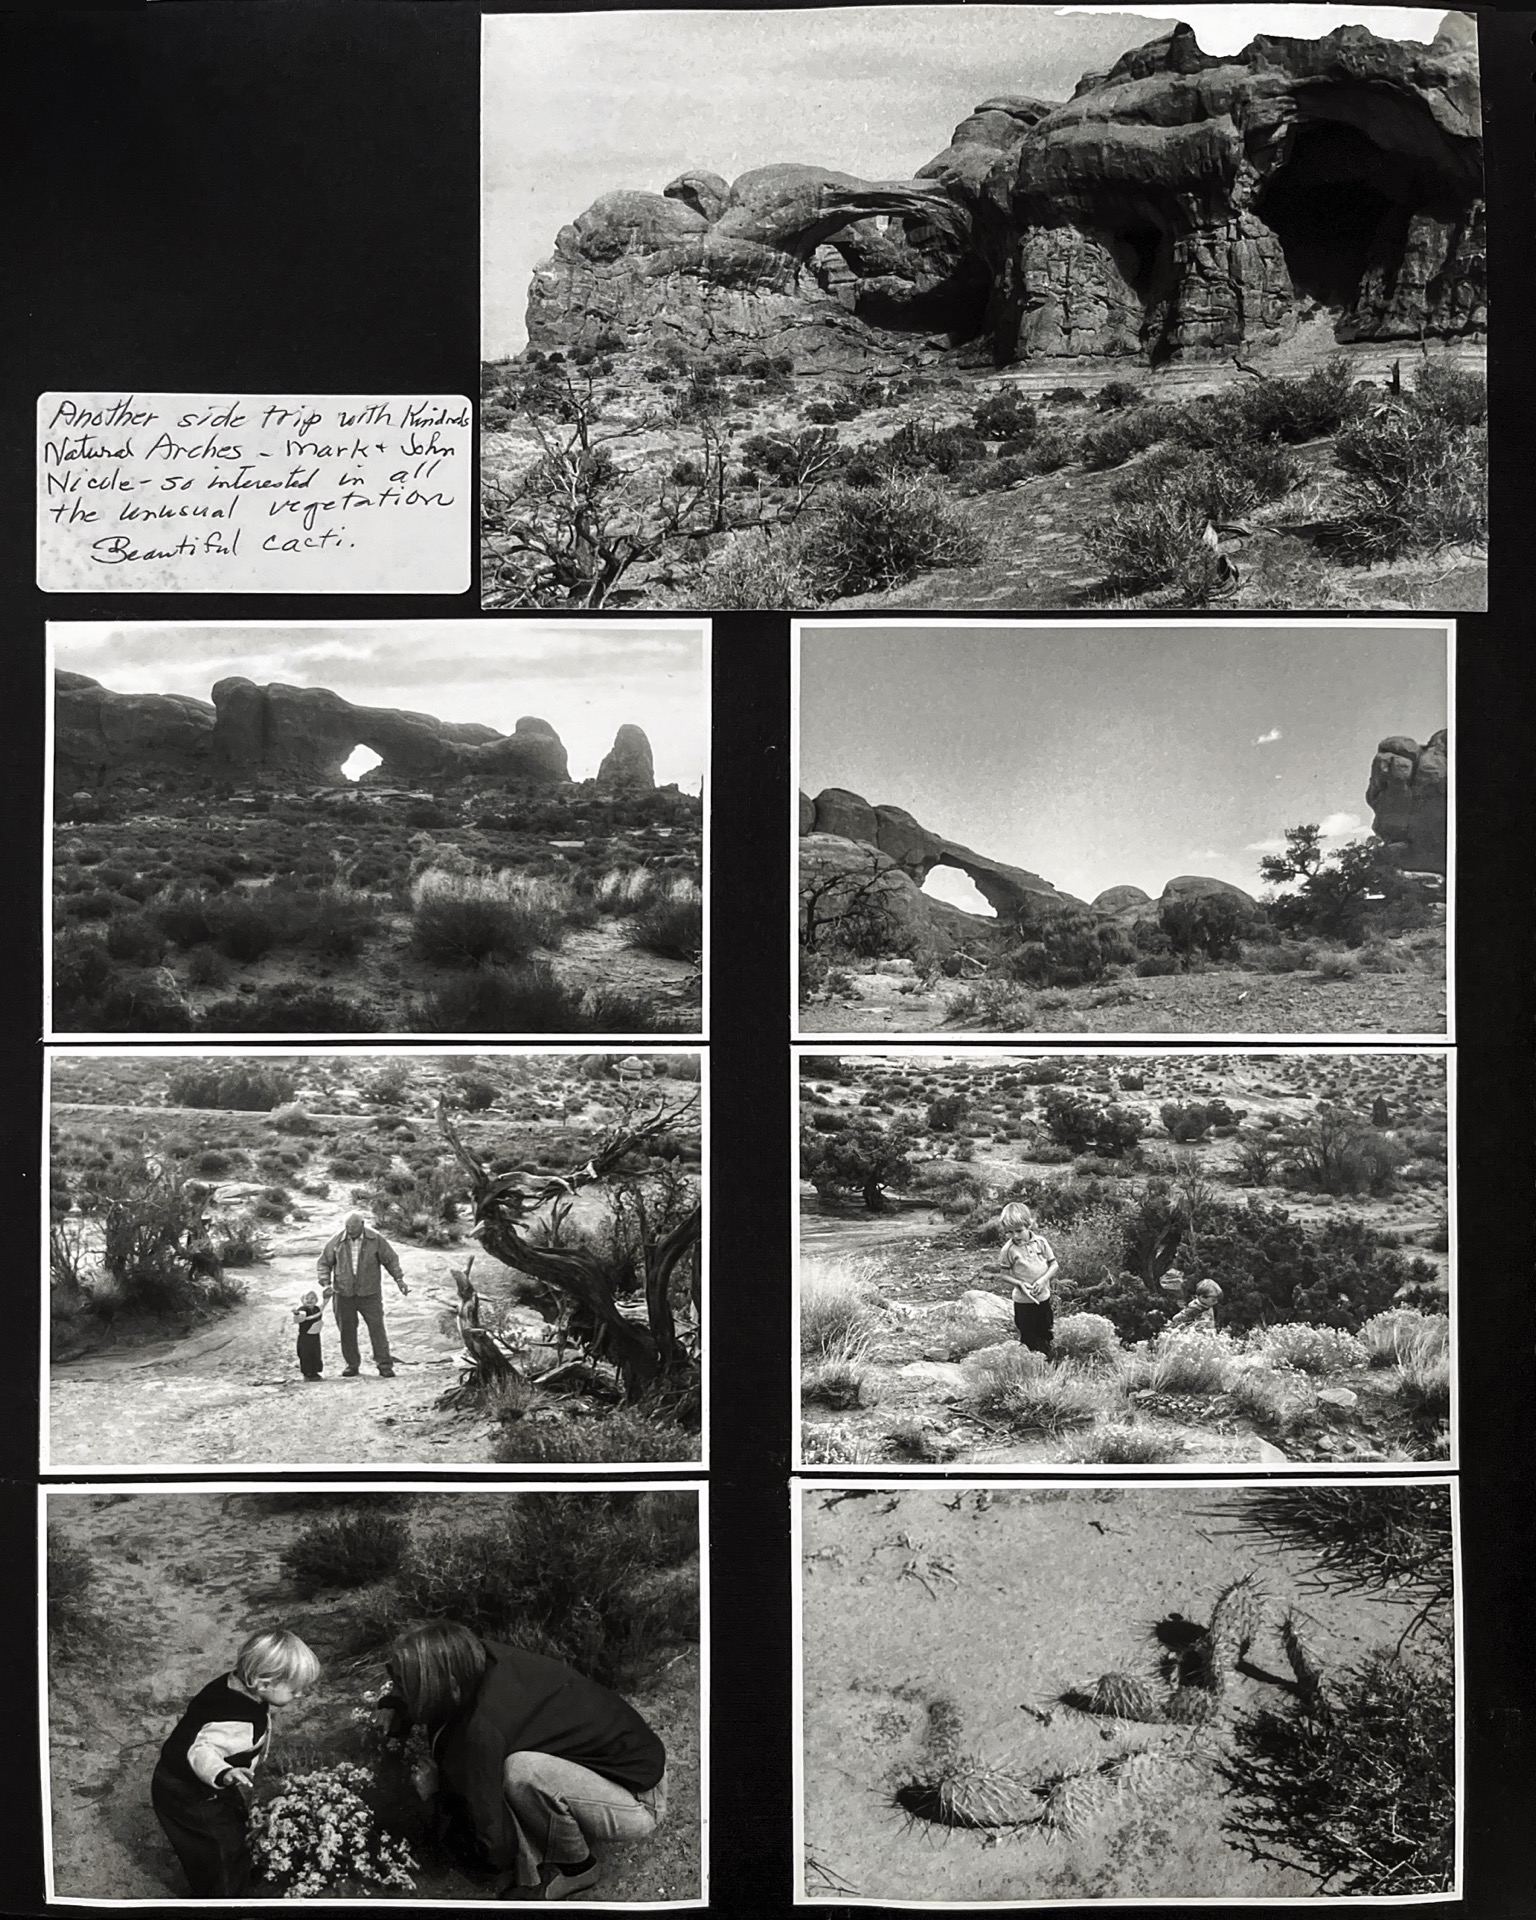 Another side trip with Kindreds
Natural Arches - Mark + John
Nicole - so interested in all
the unusual vegetation
Beautiful cacti.